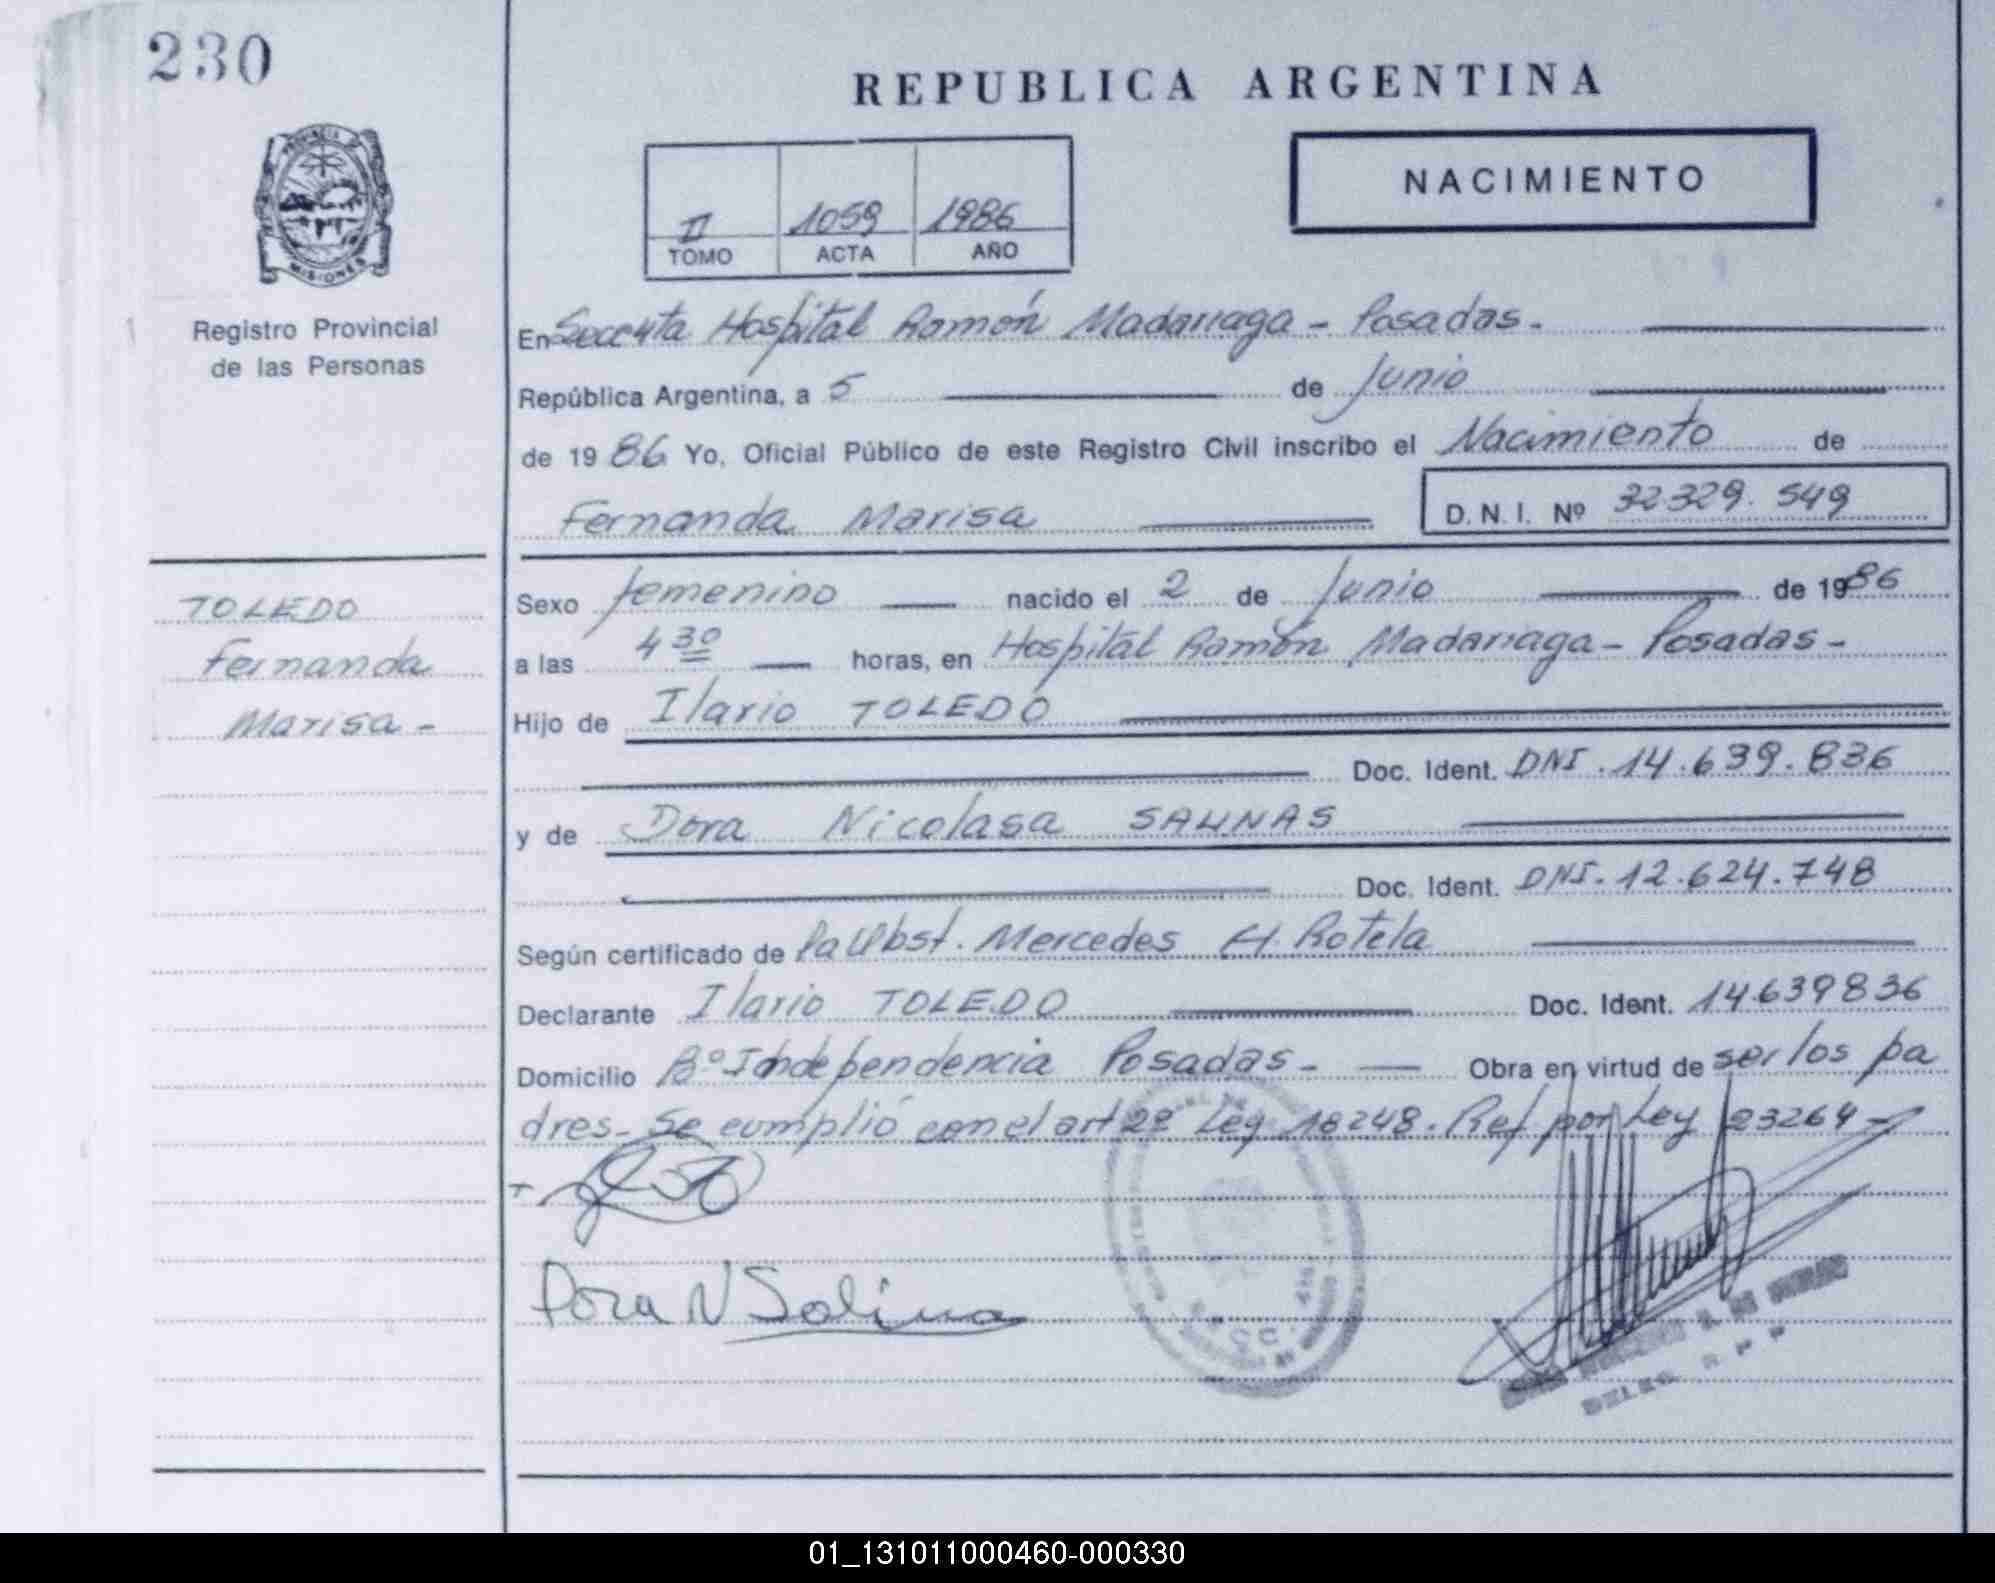 230
REPUBLICA ARGENTINA
NACIMIENTO
II 1059 1986
TOMO ACTA AÑO
PROVINCIA DE
MISIONES
Registro Provincial
de las Personas
En Secc 4ta Hospital Ramón Madariaga - Posadas.
República Argentina, a 5 de Junio
de 1986 Yo, Oficial Público de este Registro Civil inscribo el Nacimiento de
Fernanda Marisa D. N. I. Nº 32329.549
TOLEDO
Fernanda
Marisa -
Sexo femenino nacido el 2 de Junio de 1986
a las 4 30 horas, en Hospital Ramón Madariaga - Posadas -
Hijo de Ilario TOLEDO
Doc. Ident. DNI. 14.639.836
y de Dora Nicolasa SALINAS
Doc. Ident. DNI. 12.624.748
Según certificado de la Obst. Mercedes H. Rotela
Declarante Ilario TOLEDO Doc. Ident. 14639836
Domicilio Bº Independencia Posadas - Obra en virtud de ser los pa
dres - Se cumplió con el art 2º Ley 18248. Ref por Ley 23264 -
Dora N Salina
01_131011000460-000330